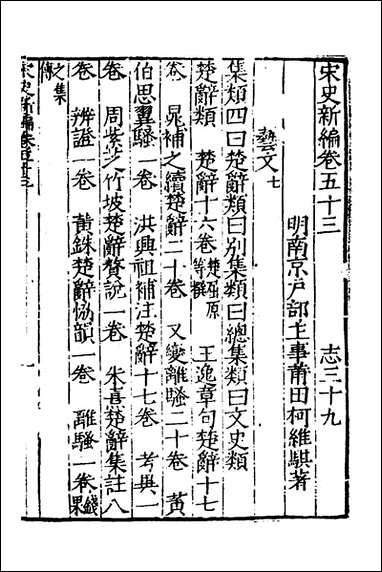 宋史新編卷五十三　志三十九
明南京戶部主事莆田柯維騏著
藝文七
集類四曰楚辭類曰別集類曰總集類曰文史類
楚辭類　楚辭十六卷楚屈原等撰　王逸章句楚辭十七
卷　晁補之續楚辭二十卷　又變離騷二十卷　黃
伯思翼騷一卷　洪興祖補注楚辭十七卷　考異一
卷　周紫芝竹坡楚辭贅說一卷　朱熹楚辭集註八
卷　辨證一卷　黃銖楚辭協韻一卷　離騷一卷錢杲
之集傳
宋史新編卷五十三